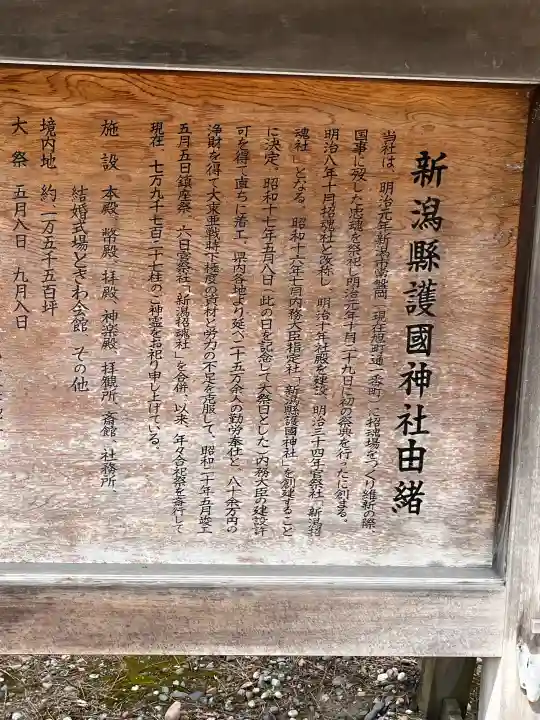 新潟縣護國神社由緒
当社は、明治元年新潟市常盤岡(現在旭町通一番町)に招魂場をつくり維新の際、
国事に殁した忠魂を祭祀し明治元年十月二十九日に初の祭典を行ったに創まる。
明治八年十月招魂社と改称し、明治十年社殿を建設、明治三十四年官祭社「新潟招
魂社」となる。昭和十六年二月内務大臣指定社「新潟縣護國神社」を創建すること
に決定、昭和十七年五月八日(此の日を記念して大祭日とした)内務大臣の建設許
可を得て直ちに着工、県内各地より延べ二十五万余人の勤労奉仕と、八十余万円の
浄財を得て大東亜戦時下極度の資材と労力の不足を克服して、昭和二十年五月竣工
五月五日鎮座祭、六日官祭社「新潟招魂社」を合併、以来、年々合祀祭を斎行して
現在、七万九千七百二十九柱のご神霊をお祀り申し上げている。
施設 本殿、幣殿、拝殿、神楽殿、拝観所、斎館、社務所、
結婚式場ときわ会館 その他
境内地 約、二万五千五百坪
大祭 五月八日 九月八日